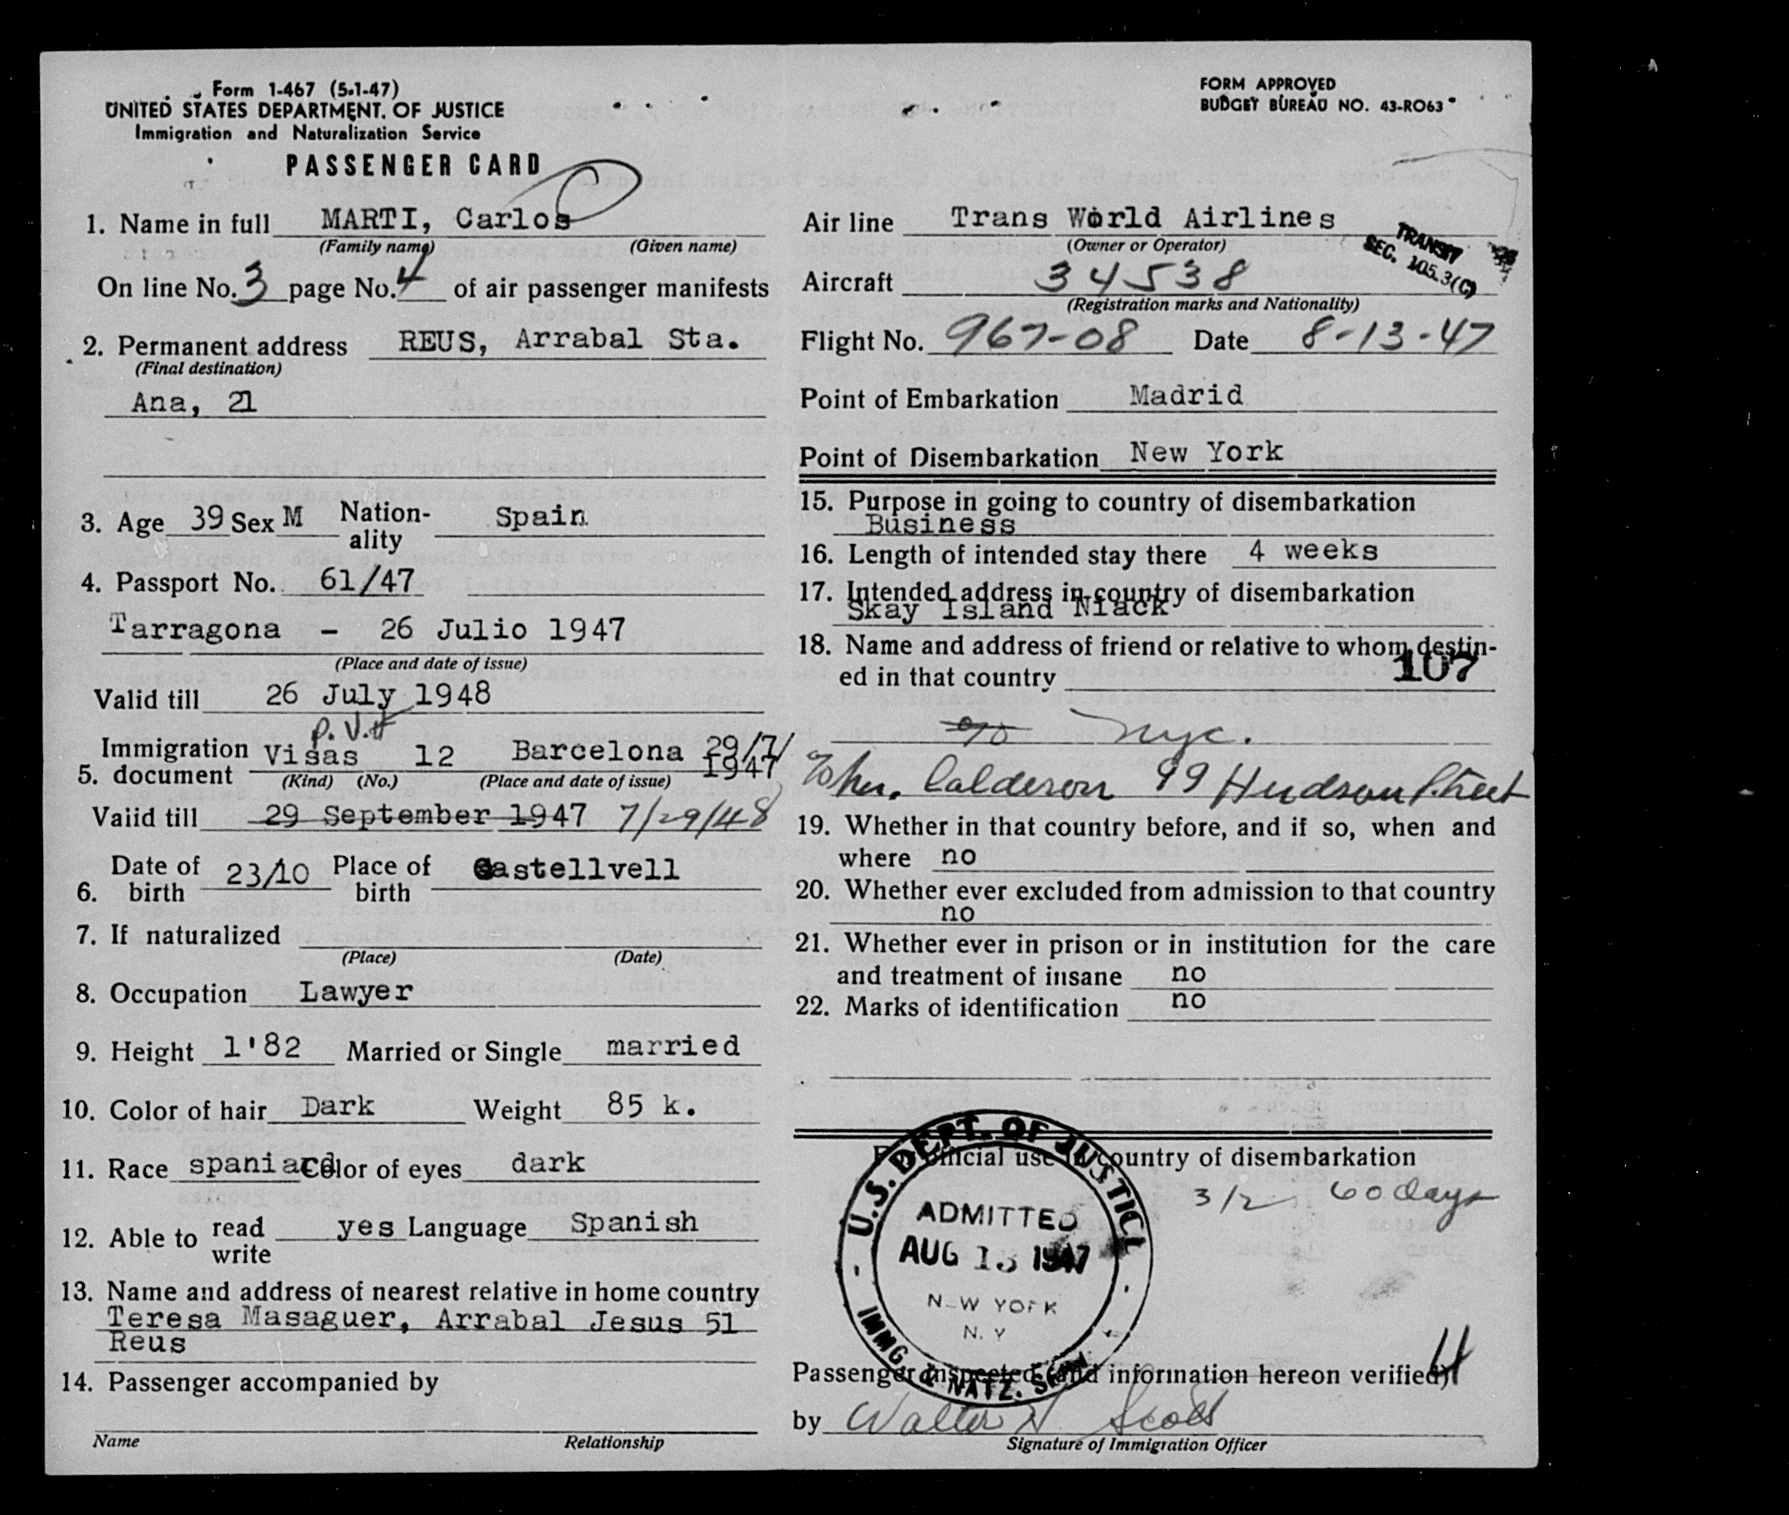 Form 1-467 (5-1-47)
UNITED STATES DEPARTMENT OF JUSTICE
Immigration and Naturalization Service
PASSENGER CARD
FORM APPROVED
BUDGET BUREAU NO. 43-RO63
1. Name in full MARTI, Carlos
(Family name) (Given name)
On line No. 3 page No. 4 of air passenger manifests
2. Permanent address REUS, Arrabal Sta.
(Final destination)
Ana, 21
3. Age 39 Sex M Nation-ality Spain
4. Passport No. 61/47
Tarragona - 26 Julio 1947
(Place and date of issue)
Valid till 26 July 1948
P.V.#
5. Immigration document Visas 12 Barcelona 29/7/1947
(Kind) (No.) (Place and date of issue)
Valid till 29 September 1947 7/29/48
6. Date of birth 23/10 Place of birth Castellvell
7. If naturalized
(Place) (Date)
8. Occupation Lawyer
9. Height 1'82 Married or Single married
10. Color of hair Dark Weight 85 k.
11. Race spaniard Color of eyes dark
12. Able to read write yes Language Spanish
13. Name and address of nearest relative in home country
Teresa Masaguer, Arrabal Jesus 51
Reus
14. Passenger accompanied by
Name Relationship
Air line Trans World Airlines
(Owner or Operator)
TRANSIT
SEC. 105.3(C)
Aircraft 34538
(Registration marks and Nationality)
Flight No. 967-08 Date 8-13-47
Point of Embarkation Madrid
Point of Disembarkation New York
15. Purpose in going to country of disembarkation
Business
16. Length of intended stay there 4 weeks
17. Intended address in country of disembarkation
Skay Island Niack
18. Name and address of friend or relative to whom destin-
ed in that country 107
c/o NYC.
Calderon 99 Hudson Street
19. Whether in that country before, and if so, when and
where no
20. Whether ever excluded from admission to that country
no
21. Whether ever in prison or in institution for the care
and treatment of insane no
22. Marks of identification no
For official use in country of disembarkation
3/2 60 days
U.S. DEPT. OF JUSTICE
ADMITTED
AUG 13 1947
NEW YORK
N. Y
IMMG. & NATZ. SERV.
Passenger inspected (and information hereon verified)
by Walter H Scott
Signature of Immigration Officer